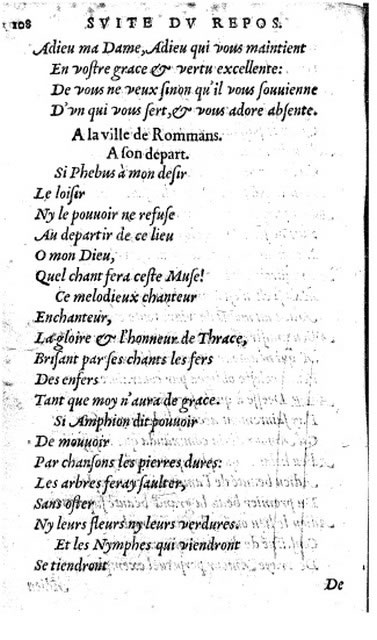 108 SVITE DV REPOS.
Adieu ma Dame, Adieu qui vous maintient
En vostre grace & vertu excellente:
De vous ne veux sinon qu'il vous souuienne
D'vn qui vous sert, & vous adore absente.
A la ville de Rommans.
A son depart.
Si Phebus à mon desir
Le loisir
Ny le pouuoir ne refuse
Au departir de ce lieu
O mon Dieu,
Quel chant fera ceste Muse!
Ce melodieux chanteur
Enchanteur,
La gloire & l'honneur de Thrace,
Brisant par ses chants les fers
Des enfers
Tant que moy n'aura de grace.
Si Amphion dit pouuoir
De mouuoir
Par chansons les pierres dures:
Les arbres feray saulter,
Sans oster
Ny leurs fleurs ny leurs verdures.
Et les Nymphes qui viendront
Se tiendront
De